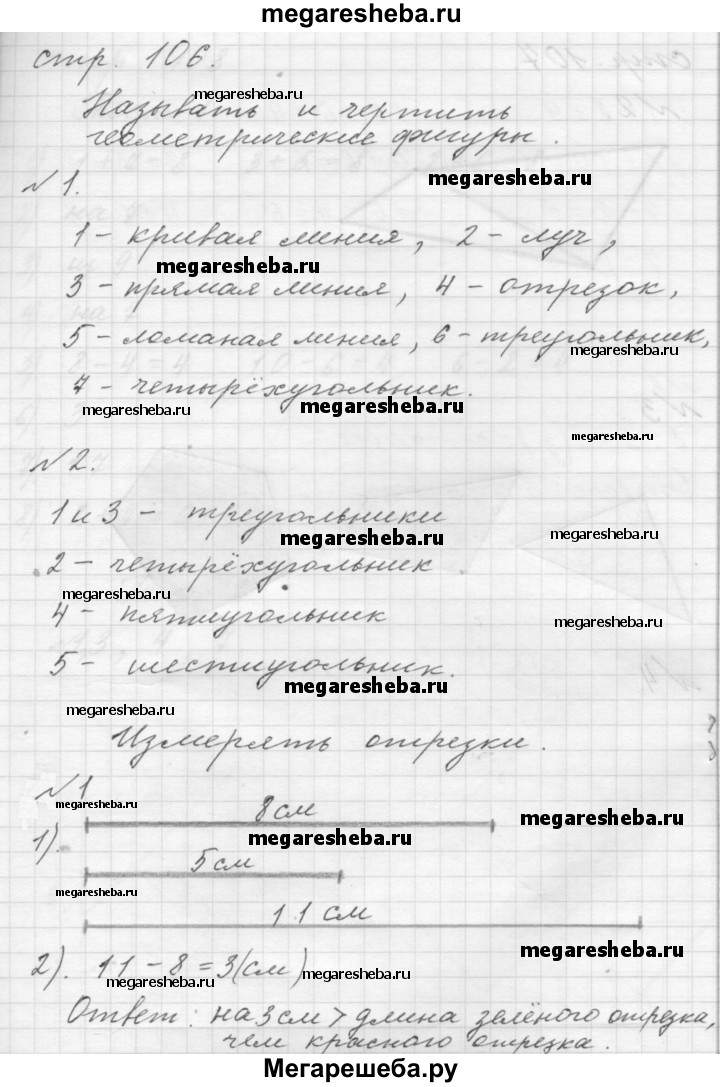 megaresheba.ru
стр. 106.
megaresheba.ru
Называть и чертить
геометрические фигуры.
№1.
megaresheba.ru
1 - кривая линия, 2 - луч,
megaresheba.ru
3 - прямая линия, 4 - отрезок,
5 - ломаная линия, 6 - треугольник,
megaresheba.ru
7 - четырёхугольник.
megaresheba.ru megaresheba.ru
megaresheba.ru
№2.
1 и 3 - треугольники
megaresheba.ru megaresheba.ru
2 - четырёхугольник
megaresheba.ru
4 - пятиугольник
megaresheba.ru
5 - шестиугольник.
megaresheba.ru
megaresheba.ru
Измерять отрезки.
№1
megaresheba.ru
8 см
megaresheba.ru
1).
megaresheba.ru
5 см
megaresheba.ru
11 см
megaresheba.ru
2). 11 - 8 = 3(см)
megaresheba.ru megaresheba.ru
Ответ: на 3см > длина зелёного отрезка,
чем красного отрезка.
Мегарешеба.ру